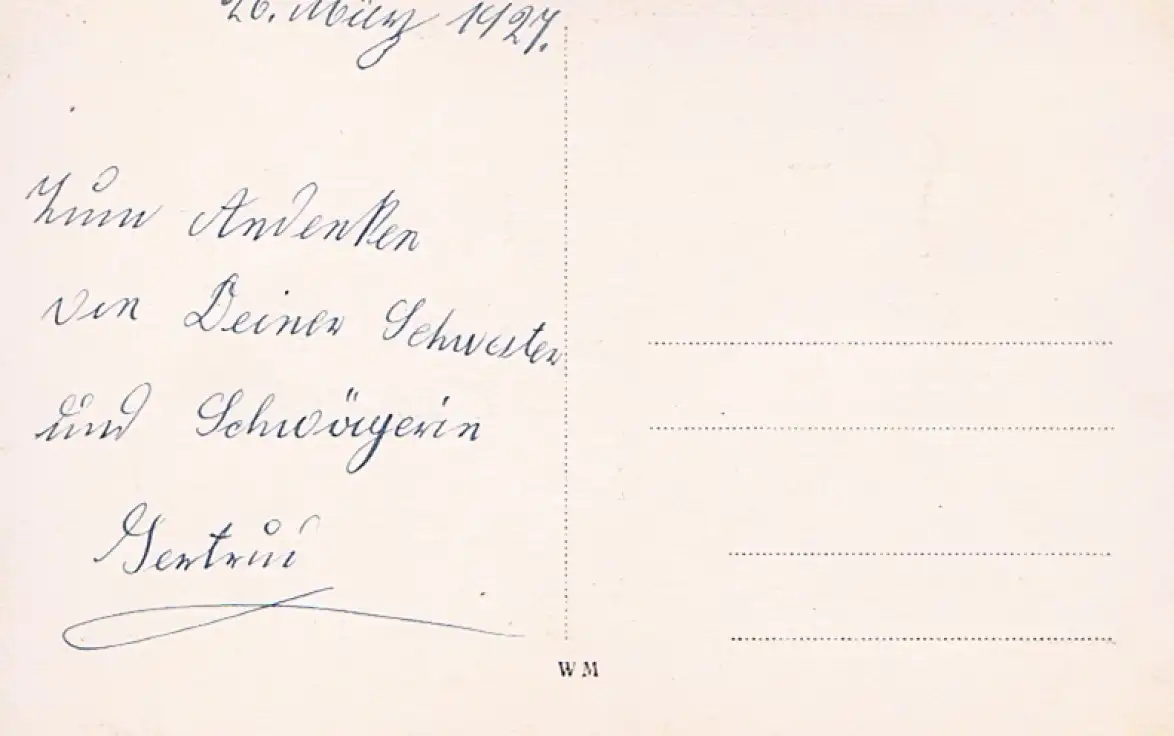 26. März 1927.
Zum Andenken
von Deiner Schwester
und Schwägerin
Gertrud
W M